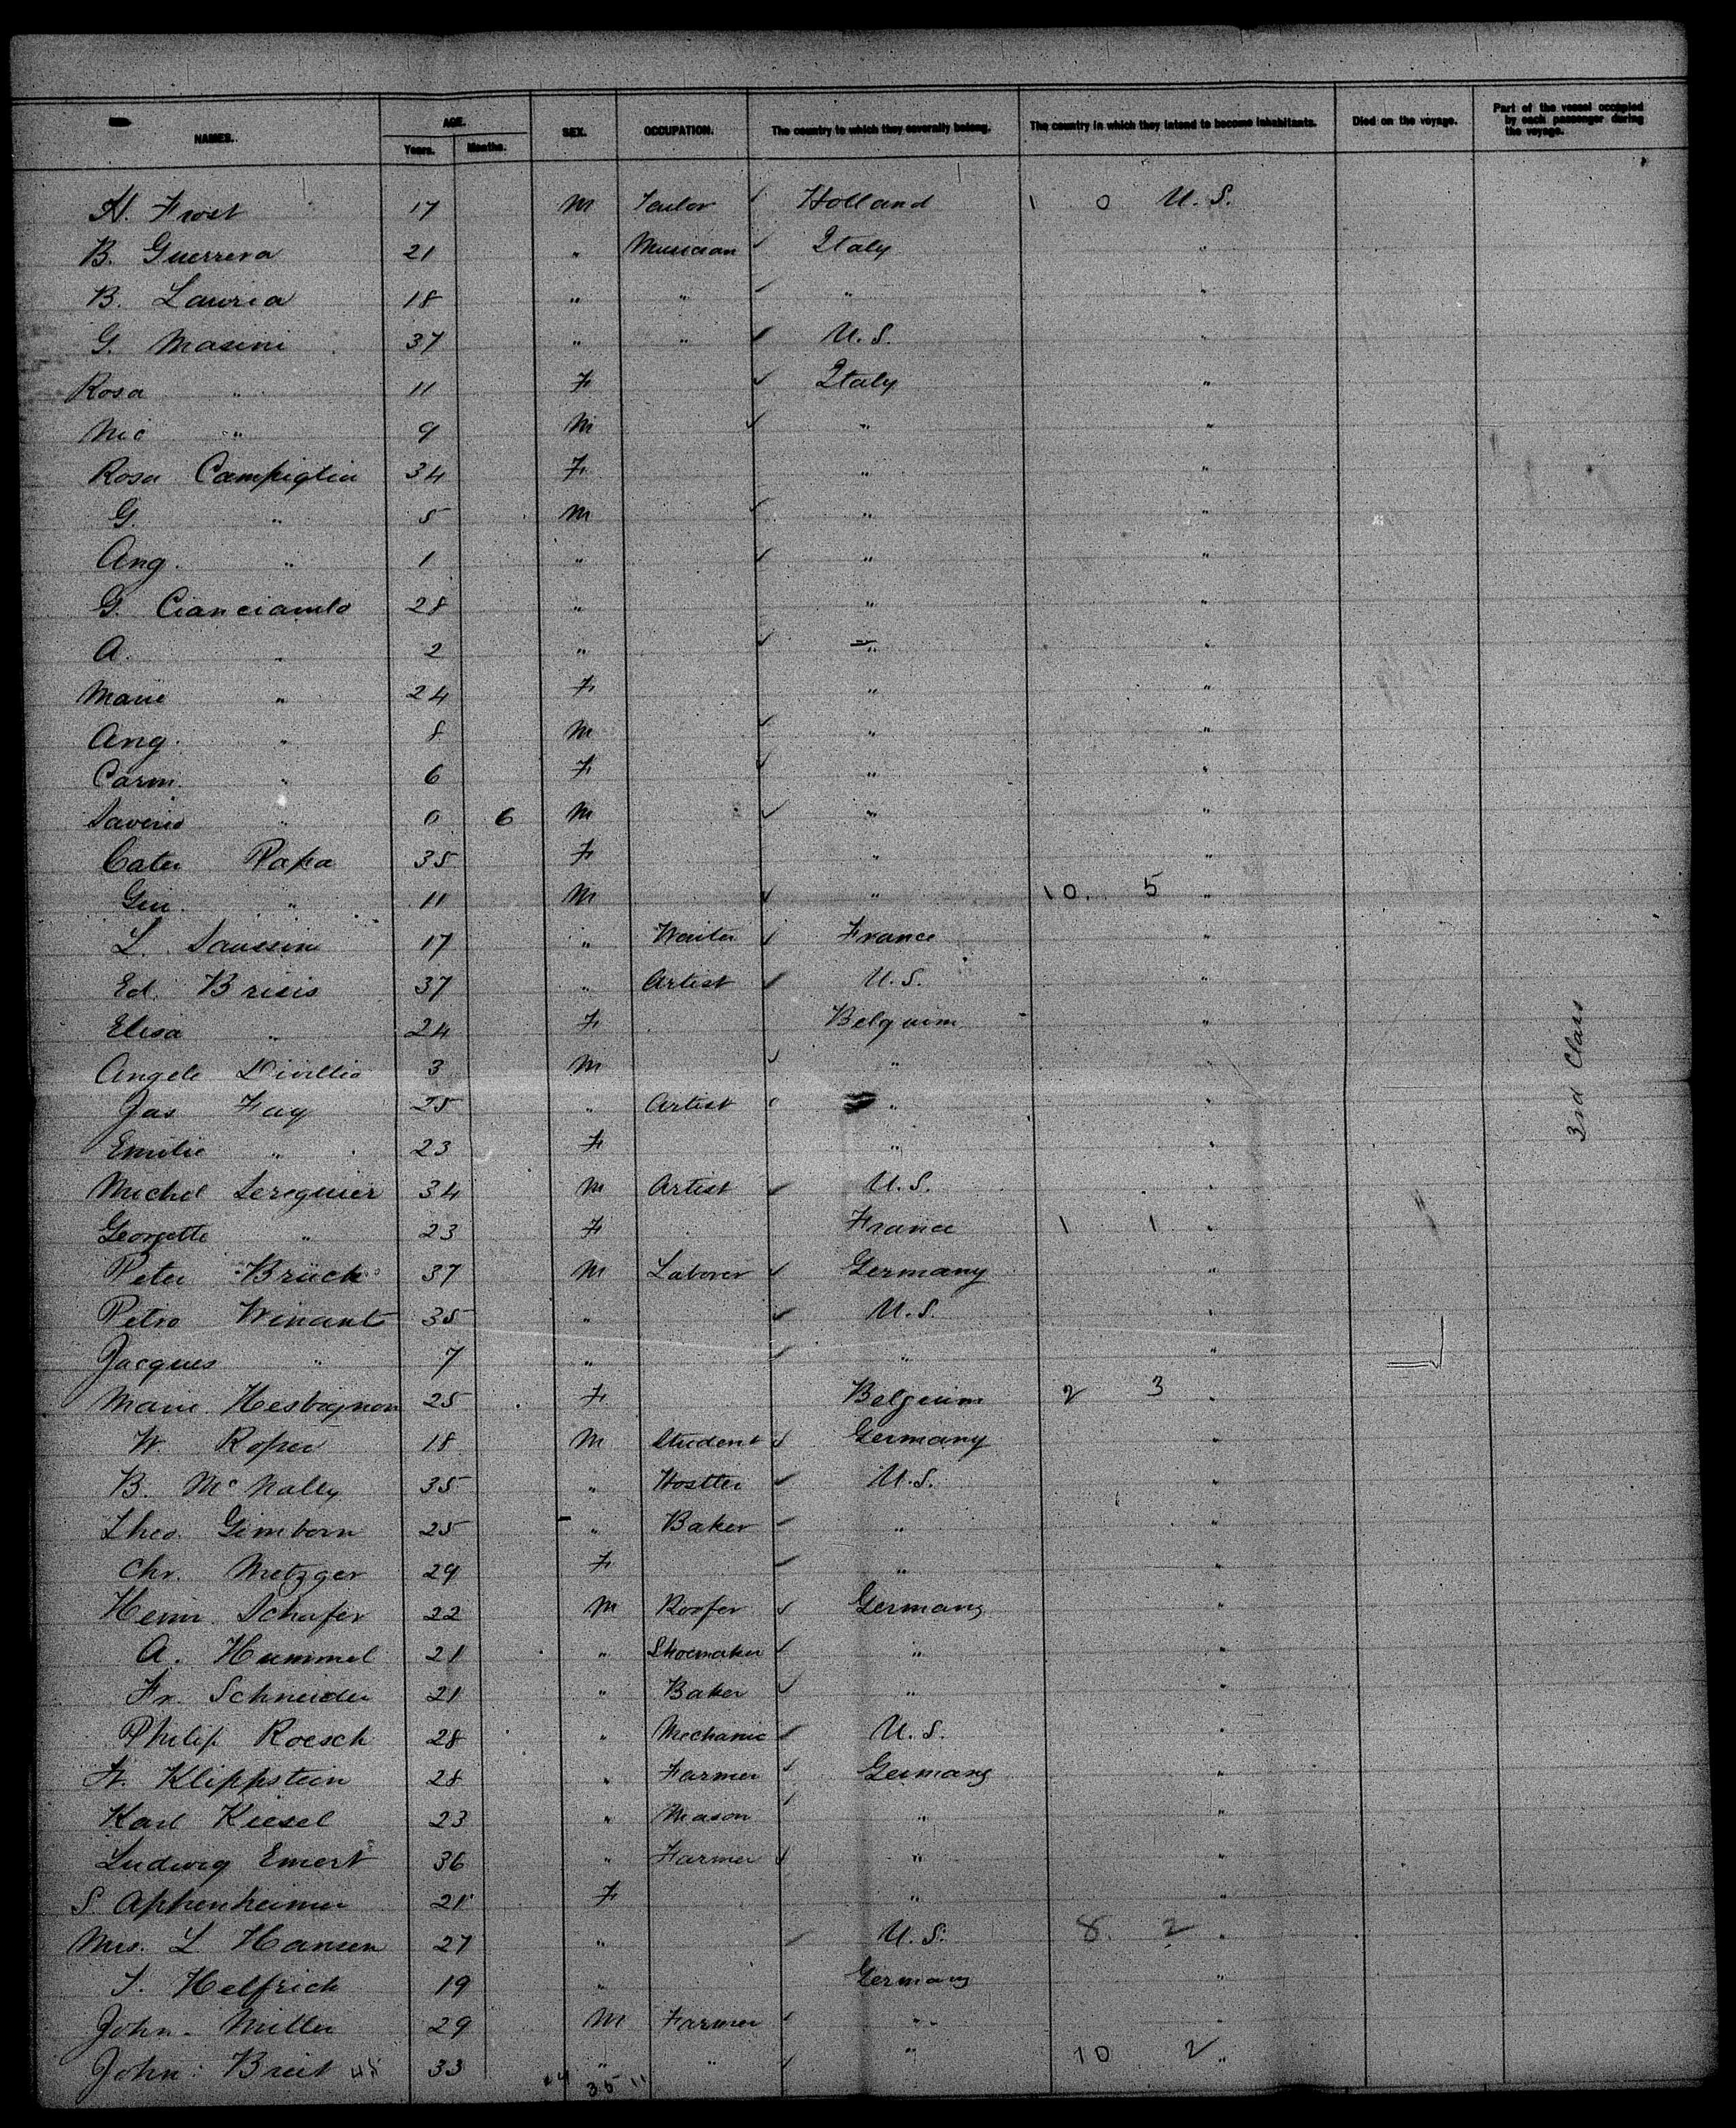 NAMES. AGE. SEX. OCCUPATION. The country to which they severally belong. The country in which they intend to become inhabitants. Died on the voyage. Part of the vessel occupied by each passenger during the voyage.
Years. Months.
H. Frost 17 M Tailor ✓ Holland 1 0 U. S.
B. Guerrera 21 " Musician ✓ Italy "
B. Lauria 18 " " ✓ " "
G. Masini 37 " " ✓ U. S. "
Rosa " 11 F ✓ Italy "
Nic " 9 M ✓ " "
Rosa Campiglia 34 F " "
G. " 5 M ✓ " "
Ang. " 1 " ✓ " "
G. Cianciamlo 28 " " "
A. " 2 " ✓ " "
Marie " 24 F " "
Ang. " 8 M ✓ " "
Carm. " 6 F ✓ " "
Saverio " 0 6 M ✓ " "
Cater Papa 35 F " "
Giu. " 11 M ✓ " 10. 5 "
L. Saussine 17 " Waiter ✓ France "
Ed. Brisis 37 " Artist ✓ U. S. "
Elisa " 24 F Belguim "
Angele 3 M ✓ " "
Jas Fay 25 " Artist ✓ " "
Emilie " 23 F " "
Michel Sereguier 34 M Artist ✓ U. S. "
Georgette " 23 F France 1 1 "
Peter Brück 37 M Laborer ✓ Germany "
Petro Winant 35 " ✓ U. S. "
Jacques " 7 " ✓ " "
Marie Hesbignon 25 F Belgium 2 3 "
W. Roper 18 M Student ✓ Germany "
B. McNally 35 " Hostler ✓ U. S. "
Theo. Gimborn 25 " Baker ✓ " "
Chr. Metzger 29 F ✓ " "
Heinr. Schafer 22 M Roofer ✓ Germany "
A. Hummel 21 " Shoemaker ✓ " "
Fr. Schneider 21 " Baker ✓ " "
Philip Roesch 28 " Mechanic ✓ U. S. "
Fr. Klippstein 28 " Farmer ✓ Germany "
Karl Kiesel 23 " Mason ✓ " "
Ludwig Emert 36 " Farmer ✓ " "
S Appenheimer 21 F " "
Mrs. L Hansen 27 " ✓ U. S. 8. 2 "
T. Helfrich 19 " Germany "
John. Miller 29 M Farmer ✓ " "
John. Breit 45 33 " " ✓ " 10 2 "
35 11
3rd Class